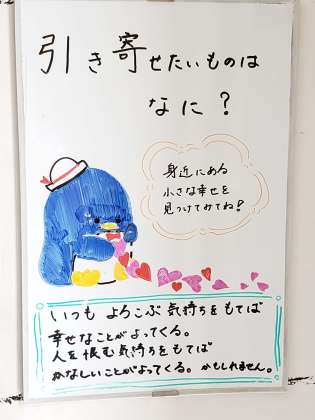 引き寄せたいものは
なに？
身近にある
小さな幸せを
見つけてみてね！
いつも よろこぶ 気持ちをもてば
幸せなことがよってくる。
人を恨む気持ちをもてば
かなしいことがよってくる。かもしれません。